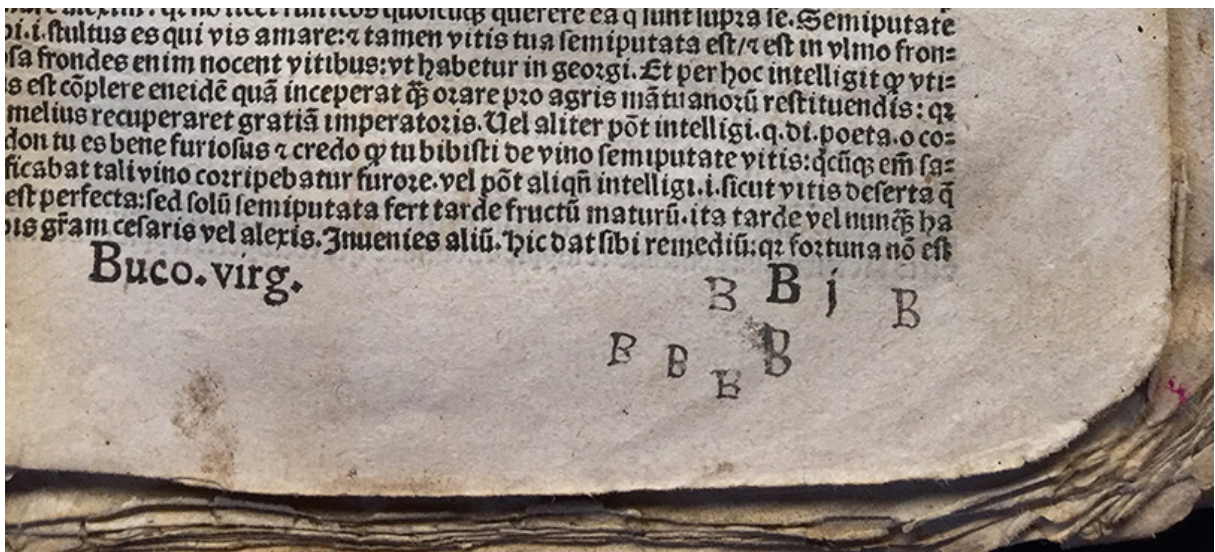 alexim. qr nō licet rusticos quoscūqꝫ querere ea q̄ sunt supra se. Semiputate
i. stultus es qui vis amare: ⁊ tamen vitis tua semiputata est/⁊ est in vlmo fron=
sa frondes enim nocent vitibus: vt habetur in georgi. Et per hoc intelligit ꝙ vti=
s est cōplere eneidē quā inceperat q̄ꝫ orare pro agris mātuanorū restituendis: qꝛ
melius recuperaret gratiā imperatoris. Uel aliter pōt intelligi. q. di. poeta. o co=
don tu es bene furiosus ⁊ credo ꝙ tu bibisti de vino semiputate vitis: qͥcūqꝫ em̄ sa=
ficabat tali vino corripebatur furore. vel pōt aliqn̄ intelligi. i. sicut vitis deserta q̄
est perfecta: sed solū semiputata fert tarde fructū maturū. ita tarde vel nunq̄ꝫ ha
bis gr̄am cesaris vel alexis. Inuenies aliū. Hic dat sibi remediū: qꝛ fortuna nō est
Buco. virg. B B j B
B B B B